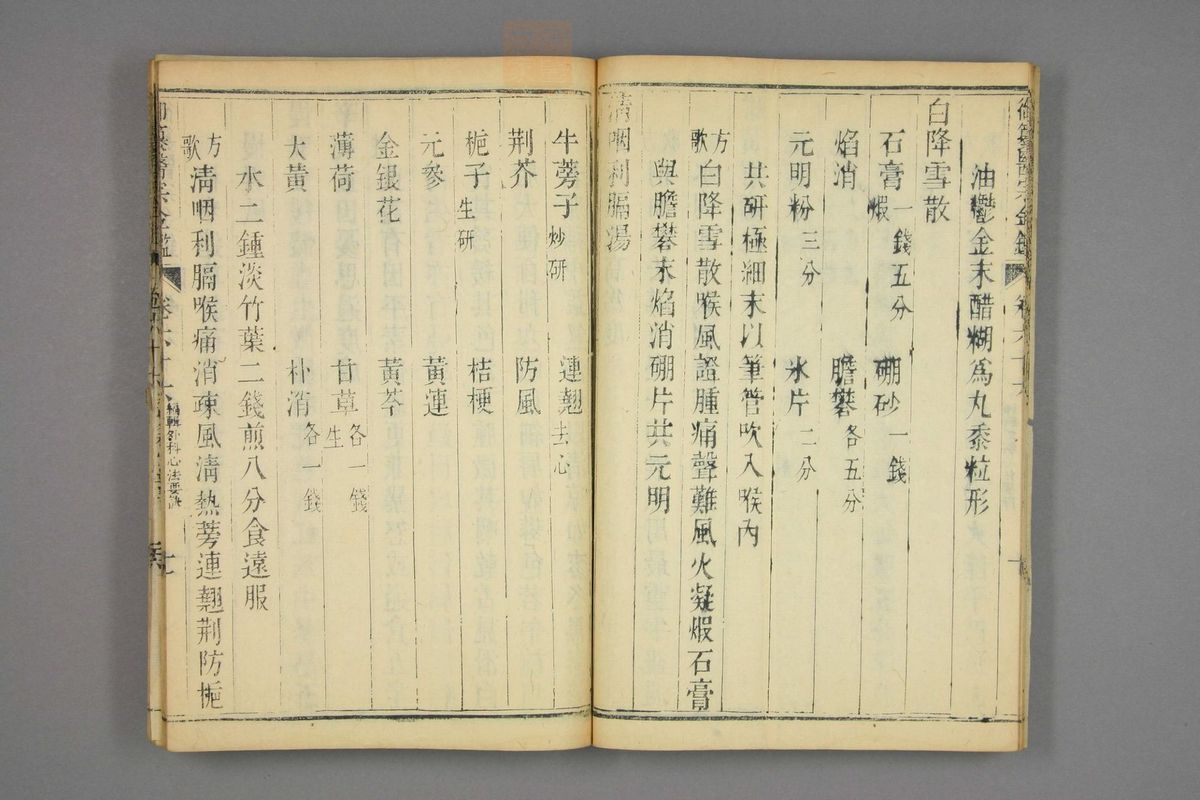 油鬱金末醋糊爲丸黍粒形
白降雪散
石膏煅一錢五分 硼砂一錢
焰消 膽礬各五分
元明粉三分 氷片二分
共研極細末以筆管吹入喉內
方歌 白降雪散喉風證腫痛聲難風火凝煅石膏
與膽礬末焰消硼片共元明
清咽利膈湯
牛蒡子炒研 連翹去心
荆芥 防風
梔子生研 桔梗
元參 黃連
金銀花 黃芩
薄荷 甘草生各一錢
大黃 朴消各一錢
水二鍾淡竹葉二錢煎八分食遠服
方歌 清咽利膈喉痛消疎風清熱蒡連翹荆防梔
編輯外科心法要訣